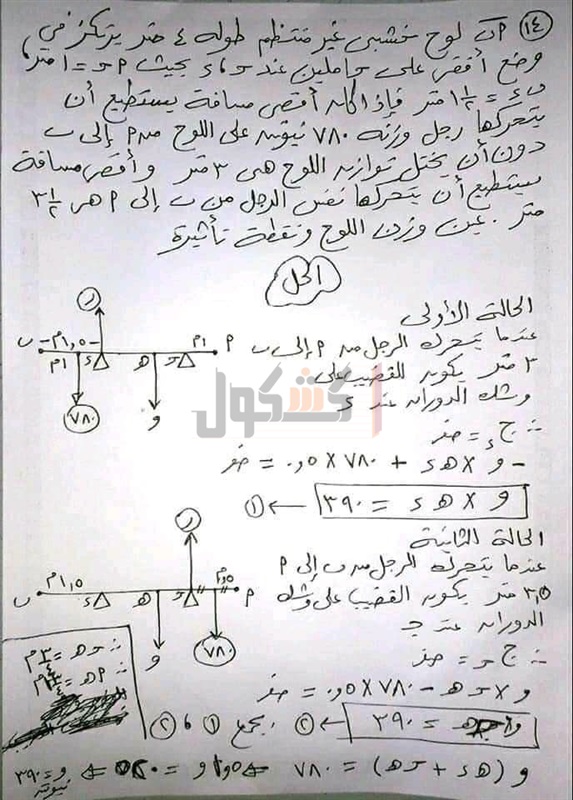 (١٤) ٢ب لوح خشبى غير منتظم طوله ٤ متر يرتكز في
وضع أفقى على حاملين عند حـ، ء بحيث ٢حـ = ١ متر،
بء = ١½ متر فإذا كانه أقصى مسافة يستطيع أن
يتحركها رجل وزنه ٧٨٠ نيوتن على اللوح من ٢ إلى ب
دون أن يختل توازنه اللوح هى ٣ متر وأقصى مسافة
يستطيع أن يتحركها نفس الرجل من ب إلى ٢ هى ٣½
متر. عين وزن اللوح ونقطة تأثيرة
الحل
الحالة الأولى
عندما يتحرك الرجل من ٢ إلى ب
٣ متر يكون القضيب على
وشك الدوران عند ء
∵ جـ ء = صفر
- و × هـ ء + ٧٨٠ × ٠,٥ = صفر
و × هـ ء = ٣٩٠ ← ①
ب -١,٥م- ر ١م ٢
١م ء هـ حـ
٧٨٠ و
كشكول
الحالة الثانية
عندما يتحرك الرجل من ب إلى ٢
٣,٥ متر يكون القضيب على وشك
الدوران عند جـ
∵ جـ حـ = صفر
و × حـ هـ - ٧٨٠ × ٠,٥ = صفر
= ٣٩٠ ← ② بجمع ① ، ②
و (هـ ء + حـ هـ) = ٧٨٠
و = ٥٢٠
ر
ب ١,٥م ء هـ حـ ٠,٥م ٢
و ٧٨٠